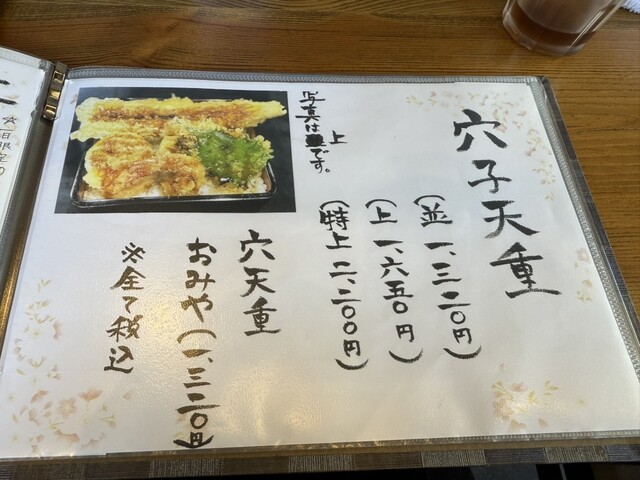 穴子天重
(並 一、三二〇円)
(上 一、六五〇円)
(特上 二、二〇〇円)
写真は上です。
穴天重
おみや(一、三二〇円)
※全て税込